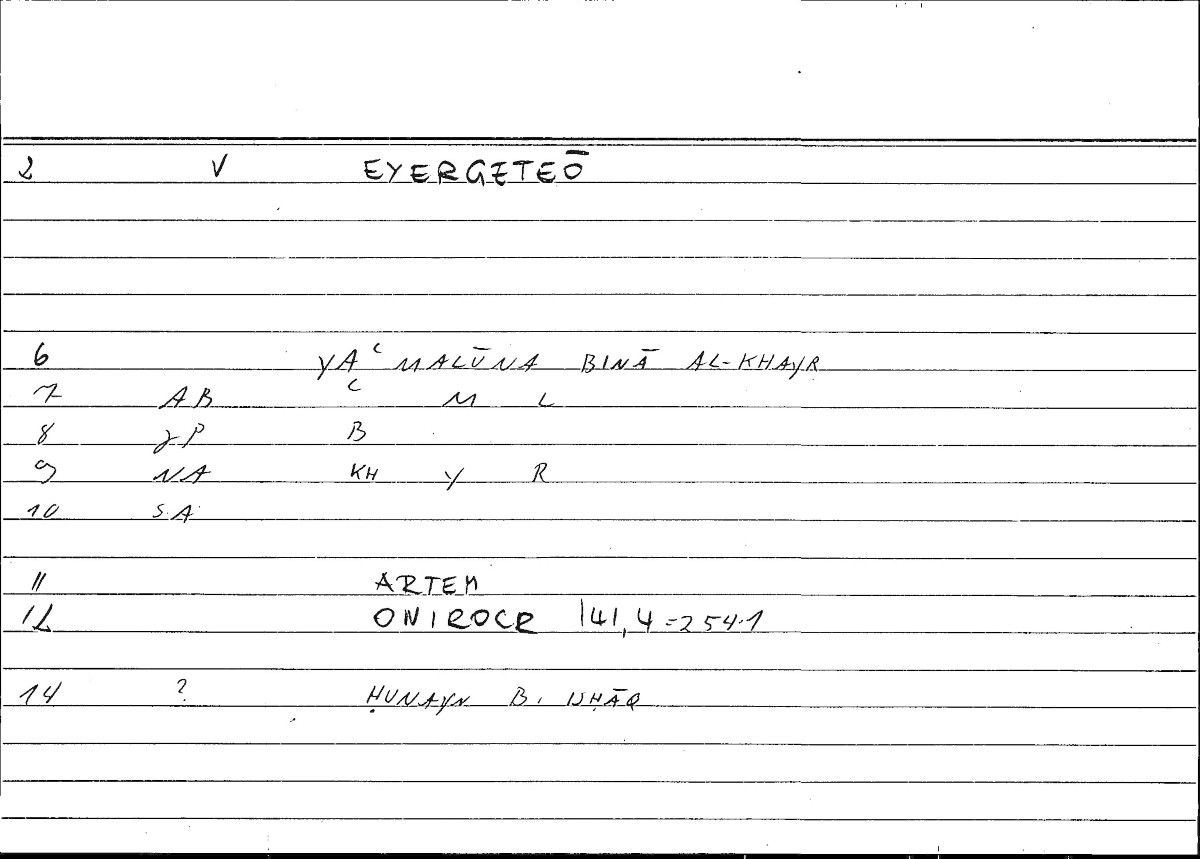 2 V EYERGETEŌ
6 YAʿMALŪNA BINĀ AL-KHAYR
7 AB ʿ M L
8 γP B
9 NA KH Y R
10 S.A
11 ARTEM
12 ONIROCR 141,4=254.1
14 ? ḤUNAYN B. ISḤĀQ